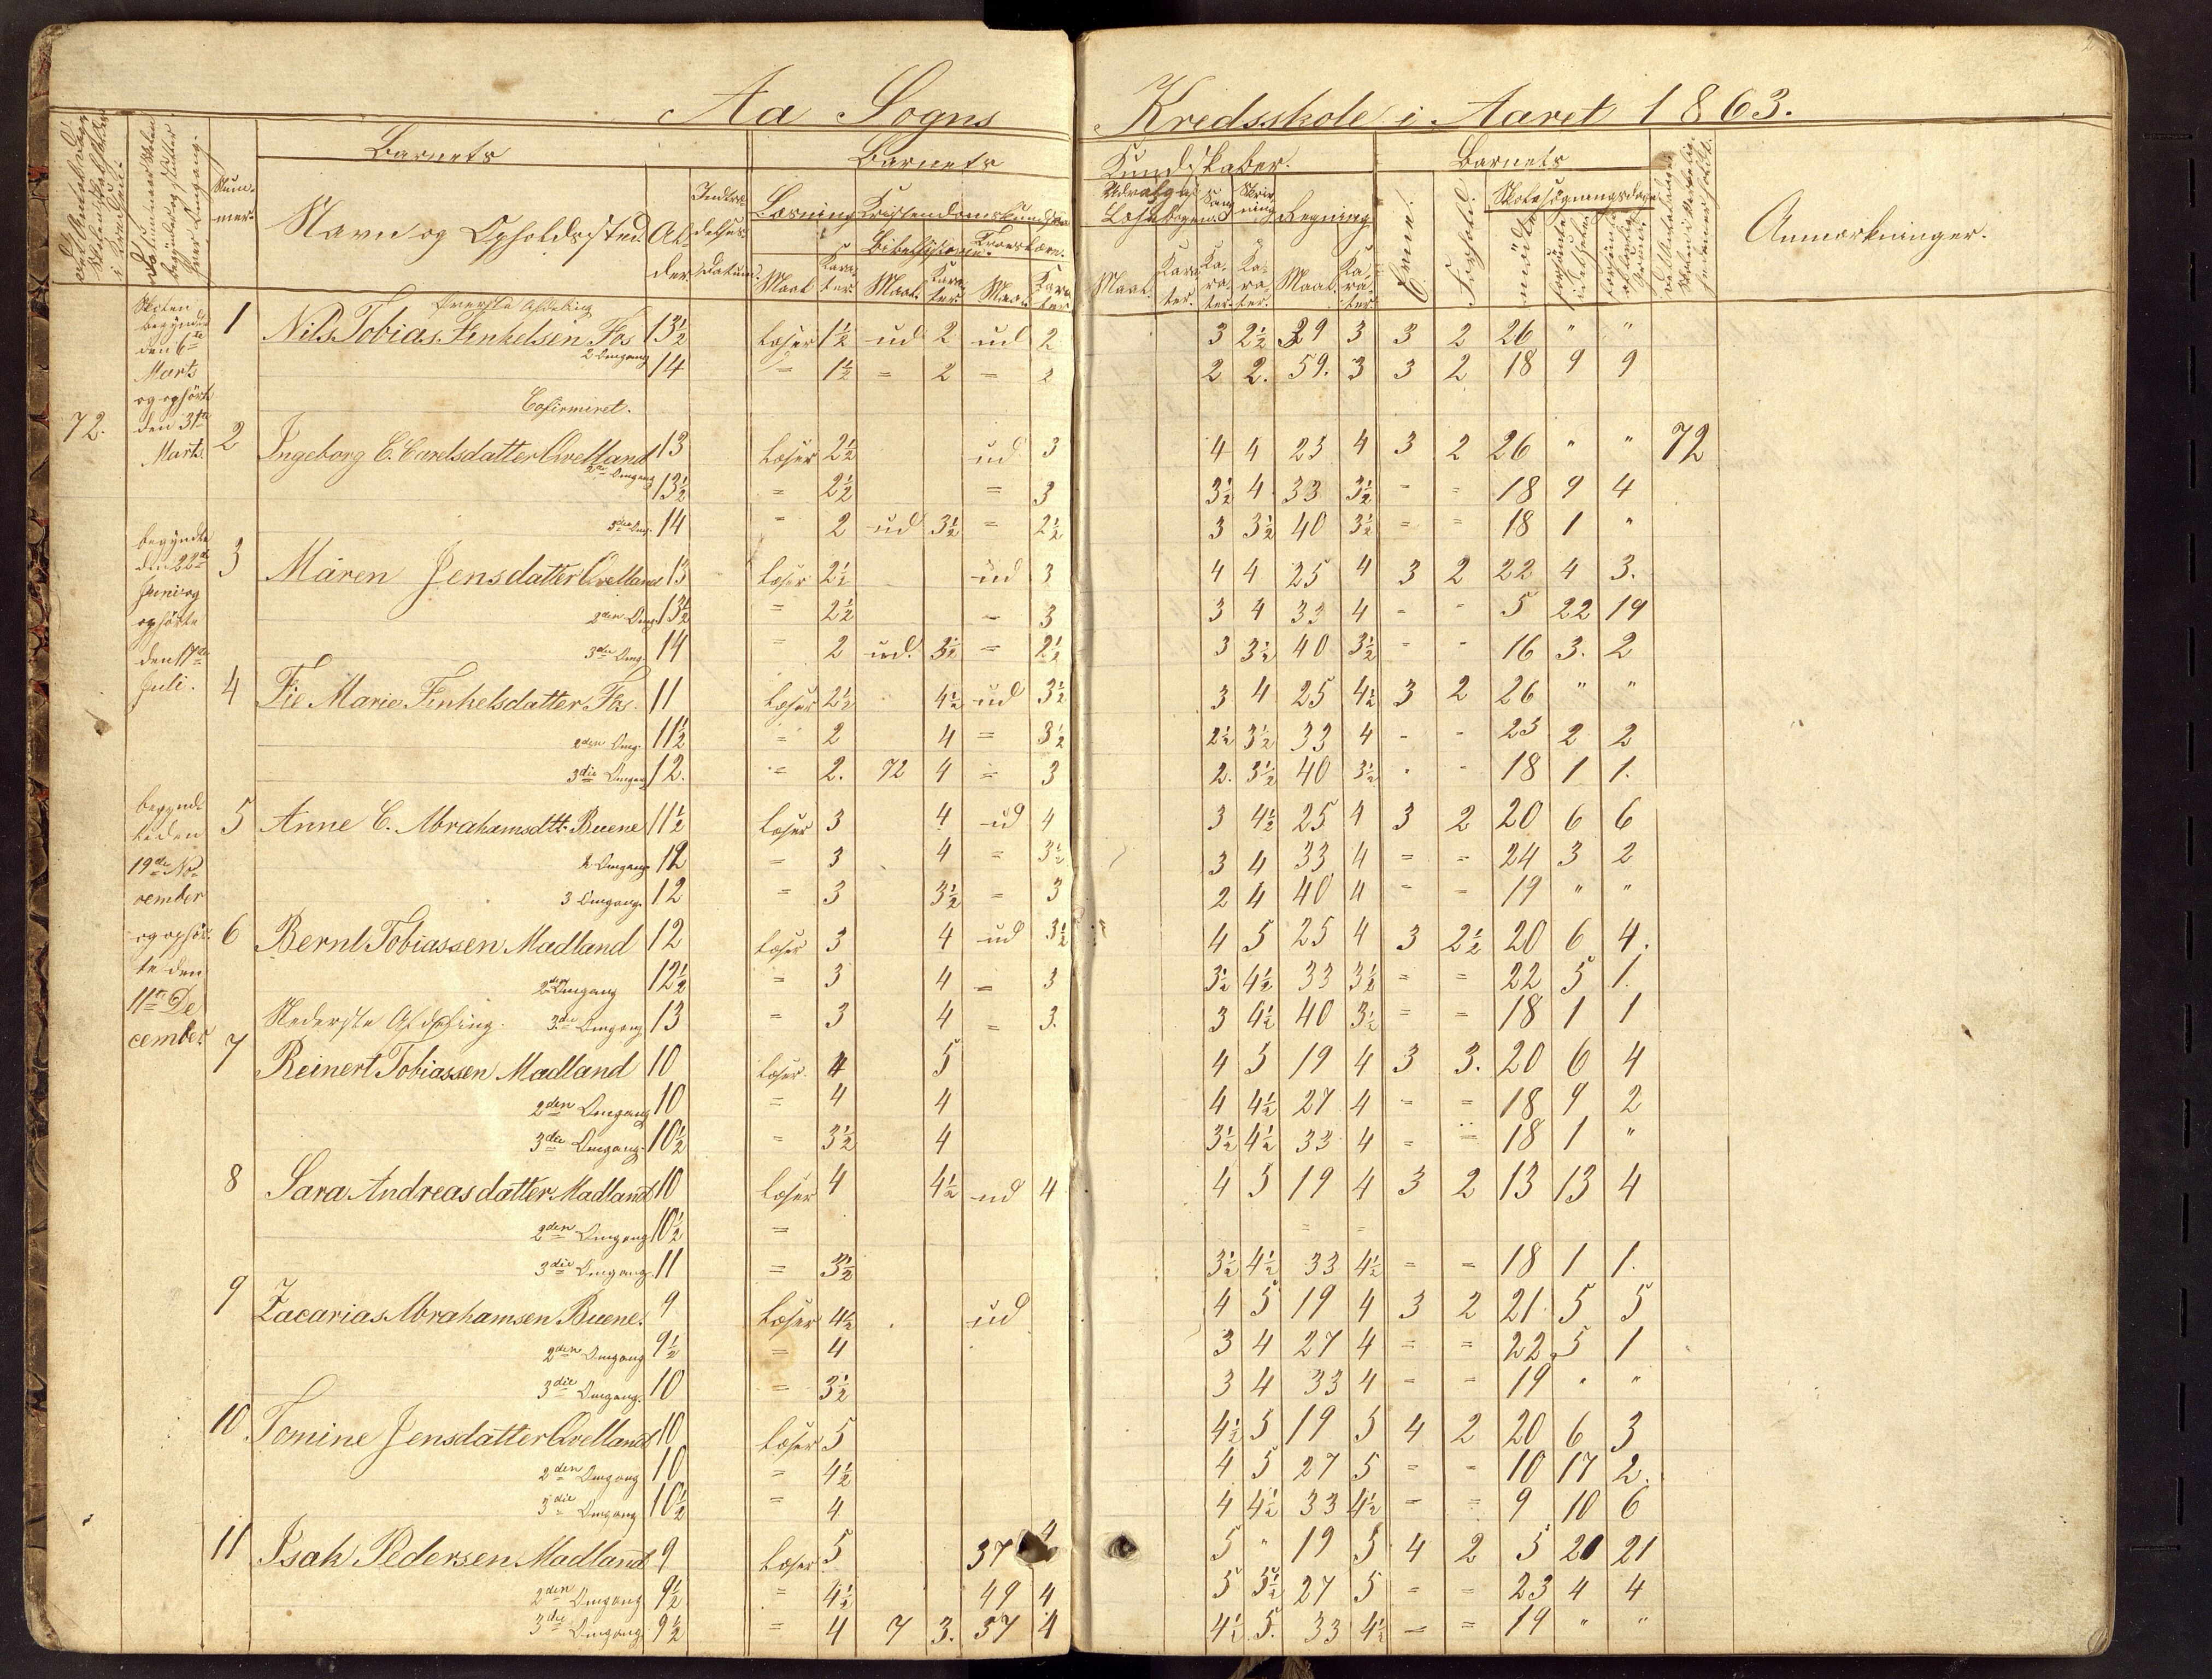 Aa Sogns Kredsskole i Aaret 1863.
Barnets Barnets Kundskaber. Barnets
Nummer. Navn og Opholdssted. Alder. Læsning Skrivning Regning Evne. Forhold. Anmærkninger.
Maal. Karakter. Maal. Karakter. Maal. Karakter. Maal. Karakter. Karakter. Karakter. Maal. Karakter.
Bibelhistorie. Troeslære.
Øverste Afdeling
Skolen begyndte den 6te Marts og ophørte den 31te Marts.
1 Nils Tobias Finkelsen Fos 13½ læser 1½ ud 2 ud 2 3 2½ 29 3 3 2 26 " "
2 Omgang 14 = 1½ = 2 = 2 2 2. 59. 3 3 2 18 9 9
Cofirmiret.
72. 2 Ingeborg C. Carelsdatter Qvelland 13 læser 2½ ud 3 4 4 25 4 3 2 26 " " 72
2den Omgang 13½ = 2½ = 3 3½ 4 33 3½ = = 18 9 4
3die Omg. 14 = 2 ud 3½ = 2½ 3 3½ 40 3½ = = 18 1 "
begyndte den 22de Juni og ophørte den 17de Juli.
3 Maren Jensdatter Qvelland 13 læser 2½ ud 3 4 4 25 4 3 2 22 4 3.
2den Omg 13½ = 2½ = 3 3 4 33 4 - - 5 22 19
3die Omg. 14 = 2 ud. 3½ = 2½ 3 3½ 40 3½ - - 16 3. 2
4 Fie Marie Finkelsdatter Fos. 11 læser 2½ 4½ ud 3½ 3 4 25 4½ 3 2 26 " "
2den Omg. 11½ = 2 4 = 3½ 2½ 3½ 33 4 - - 23 2 2
3die Omgang 12. = 2. 72 4 = 3 2. 3½ 40 3½ - - 18 1 1.
begyndte den 19de November og ophørte den 11te December
5 Anne C. Abrahamsdtt. Buene 11½ læser 3 4 ud 4 3 4½ 25 4 3 2 20 6 6
2 Omgang 12 = 3 4 = 3½ 3 4 33 4 = = 24 3 2
3 Omgang. 12 = 3 3½ = 3 2 4 40 4 - - 19 " "
6 Bernt Tobiassen Madland 12 læser 3 4 ud 3½ 4 5 25 4 3 2½ 20 6 4.
2den Omgang 12½ = 3 4 = 3 3½ 4½ 33 3½ = = 22 5 1.
Nederste Afdeling. 3die Omgang 13 = 3 4 = 3. 3 4½ 40 3½ = = 18 1 1
7 Reinert Tobiassen Madland 10 læser. 4 5 4 5 19 4 3 3. 20 6 4
2den Omgang 10 = 4 4 4 4½ 27 4 - = 18 9 2
3die Omgang. 10½ = 3½ 4 3½ 4½ 33 4 = = 18 1 "
8 Sara Andreasdatter Madland 10 læser 4 4½ ud 4 4 5 19 4 3 2 13 13 4
2den Omgang 10½ = = =
3die Omgang. 11 = 3½ 3½ 4½ 33 4½ = = 18 1 1.
9 Zacarias Abrahamsen Buene. 9 læser 4½ ud 4 5 19 4 3 2 21. 5 5
2den Omgang 9½ = 4 3 4 27 4 = = 22 5 1
3die Omgang. 10 = 3½ 3 4 33 4 - - 19 " "
10 Tomine Jensdatter Qvelland 10 læser 5 4½ 5 19 5 4 2 20 6 3
2den Omgang 10 = 4½ 4 5 27 5 = - 10 17 2.
3die Omgang 10½ = 4 4 4½ 33 4½ = = 9 10 6
11 Isak Pedersen Madland 9 læser 5 37 4 5 " 19 5 4 2 5 20 21
2den Omgang 9½ = 4½ 49 4 5 5½ 27 5 = = 23 4 4
3die Omgang 9½ = 4 7 3. 57 4 4½ 5. 33 4½ = = 19 " "